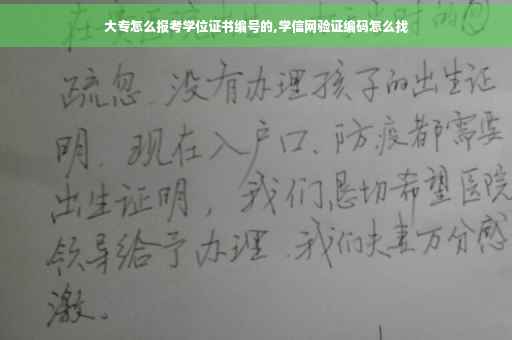 大专怎么报考学位证书编号的,学信网验证编码怎么找
疏忽、没有办理孩子的出生证
明、现在入户口、防疫都需要
出生证明，我们恳切希望医院
领导给予办理、我们夫妻万分感
激。